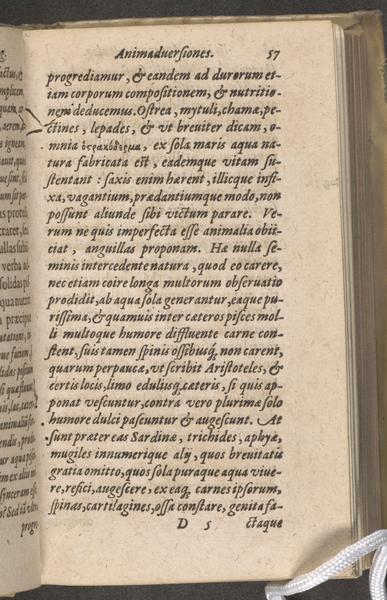 Animaduersiones. 57
progrediamur, & eandem ad durorum et-
iam corporum compositionem, & nutritio-
nem deducemus. Ostrea, mytuli, chamæ, pe-
ctines, lepades, & vt breuiter dicam, o-
mnia ὀστρακόδερμα, ex sola maris aqua na-
tura fabricata est, eademque vitam su-
stentant: saxis enim hærent, illicque infi-
xa, vagantium, prædantiumque modo, non
possunt aliunde sibi victum parare. Ve-
rum ne quis imperfecta esse animalia obij-
ciat, anguillas proponam. Hæ nulla se-
minis intercedente natura, quod eo carere,
nec etiam coire longa multorum obseruatio
prodidit, ab aqua sola generantur, eaque pu-
rissima, & quamuis inter cæteros pisces mol-
li multoque humore diffluente carne con-
stent, suis tamen spinis ossibusq; non carent,
quarum perpaucæ, vt scribit Aristoteles, &
certis locis, limo edulijsq; cæteris, si quis ap-
ponat vescuntur, contra vero plurimæ solo
humore dulci pascuntur & augescunt. At
sunt præter eas Sardinæ, trichides, aphyæ,
mugiles innumerique alij, quos breuitatis
gratia omitto, quos sola puraque aqua viue-
re, refici, augescere, ex eaq; carnes ipsorum,
spinas, cartilagines, ossa constare, genita fa-
D 5 ctaque